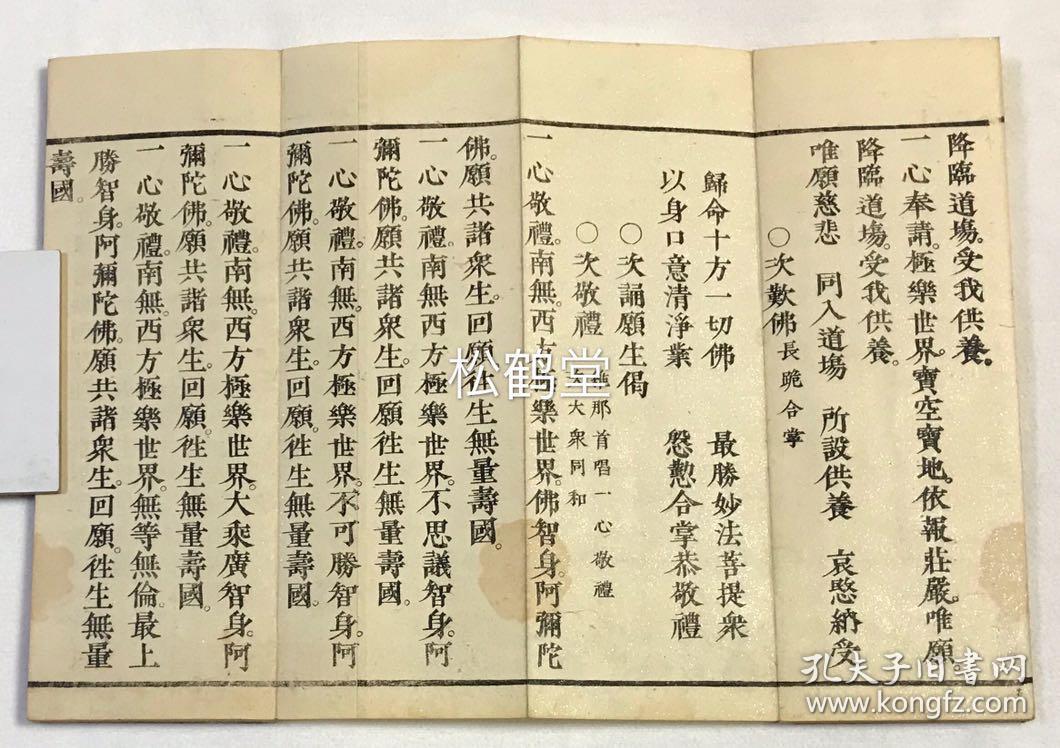 降臨道場。受我供養。
一心奉請。極樂世界。寶空寶地。依報莊嚴。唯願
降臨道場。受我供養。
唯願慈悲　同入道場　所設供養　哀愍納受
○次歎佛長跪合掌
歸命十方一切佛　最勝妙法菩提衆
以身口意清淨業　慇懃合掌恭敬禮
○次誦願生偈
○次敬禮
維那首唱一心敬禮
大衆同和
一心敬禮。南無。西方極樂世界。佛智身。阿彌陀
佛。願共諸衆生。回願往生無量壽國。
一心敬禮。南無西方極樂世界。不思議智身。阿
彌陀佛。願共諸衆生。回願往生無量壽國。
一心敬禮。南無。西方極樂世界。不可勝智身。阿
彌陀佛。願共諸衆生。回願往生無量壽國。
一心敬禮。南無。西方極樂世界。大乘廣智身。阿
彌陀佛。願共諸衆生。回願。往生無量壽國。
一心敬禮。南無。西方極樂世界。無等無倫。最上
勝智身。阿彌陀佛。願共諸衆生。回願。往生無量
壽國。
松鹤堂
孔夫子旧书网
www.kongfz.com